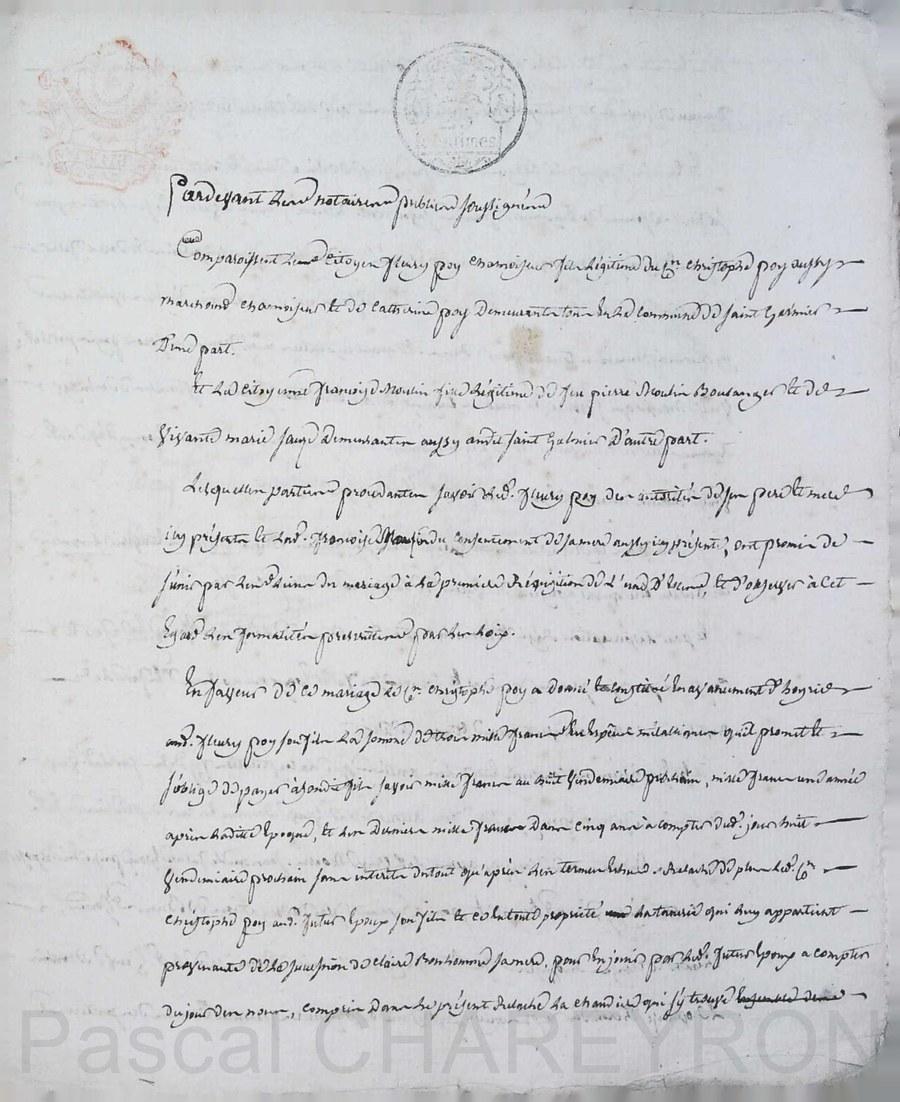 centimes
Pardevant les notaires publics soussignés
Comparoissent le citoyen fleury poy chamoiseur fils légitime du Cn. christophe poy aussy
marchand chamoiseur et de catherine poy demeurants tous en la commune de saint Galmier
D'une part.
Et la citoyenne françoise Moulin fille légitime de feu pierre Moulin Boulanger et de
vivante marie demeurante aussy audit saint Galmier d'autre part.
Lesquelles parties procédantes savoir led. fleury poy des autorités de ses pere et mere
icy présents et lad. françoise du consentement de sa mere aussy icy présente, ont promis de
s'unir par les liens du mariage à la premiere réquisition de l'un d'eux, et d'observer à cet
égard les formalités prescrites par les loix.
En faveur de ce mariage le Cn. christophe poy a donné et constitué en avancement d'hoyrie
aud. fleury poy son fils la somme de trois mille francs en espèces métalliques qu'il promet et
s'oblige de payer à sondit fils savoir mille francs au huit vendemiaire prochain, mille francs une année
après ladite époque, et les derniers mille francs dans cinq ans à compter dud. jour huit
vendemiaire prochain sans interets du tout qu'après les termes relache de plus led. Cn.
christophe poy aud. futur époux son fils et ce en toute propriété la tannerie qui luy appartient
provenante de la succession de claire Bonhomme sa mere, pour en jouir par led. futur époux a compter
du jour des noces, compris dans le présent relache la chaudiere qui s'y trouve
Pascal CHAREYRON